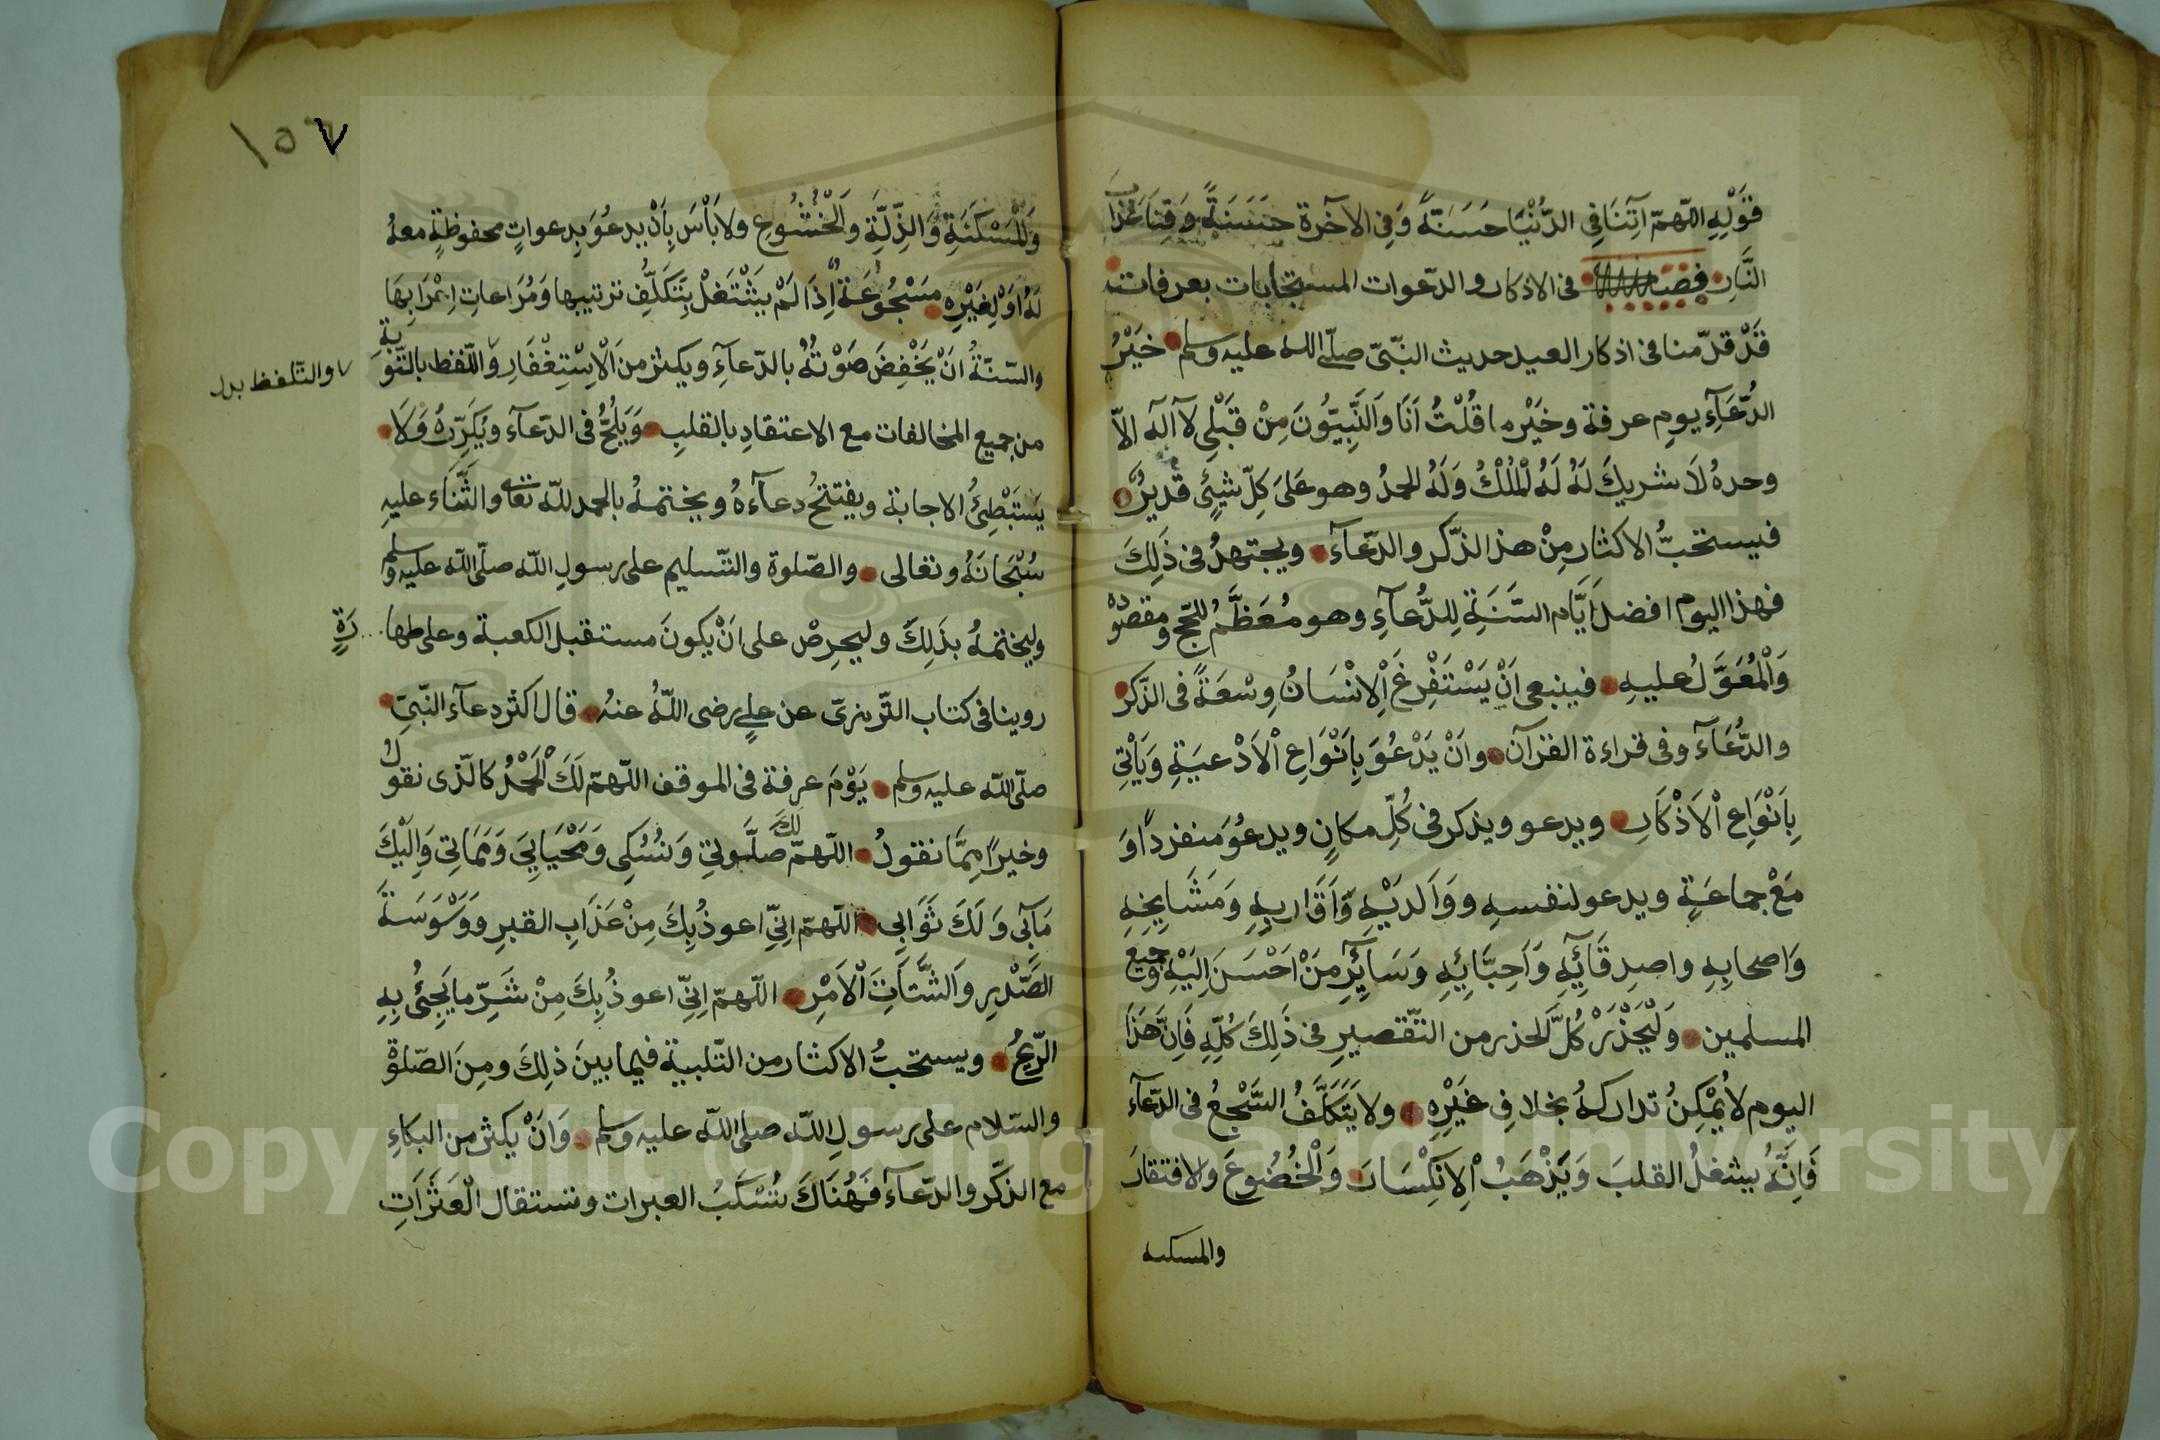 فَوْلِهِ اللّهمّ آتِنَا فِى الدّنْيَا حَسَنَةً وَفِى الآخرة حَسَنَةً وَقِنَا عَذَابَ
النَّارِ فصل فى الاذكار والدّعوات المستجابات بعرفات
قَدْ قدّمنا فى اذكار العيد حديث النّبىّ صلّى الله عليه وسلم خَيْرُ
الدُّعَآءِ يوم عرفة وخَيْر ما قُلْتُ اَنَا وَالنَّبِيُّونَ مِنْ قَبْلِى لآ اله الاّ
وحدهُ لَا شريكَ لَهُ لَهُ لْمُلْكُ وَلَهُ الحمدُ وهو عَلىَ كلّ شيئٍ قديرٌ
فيستحبُّ الاكثار مِنْ هذ الذّكر والدّعآء ويجتهدُ فى ذَلِكَ
فهذا اليوم افضلَ ايَّام السَّنَةِ لِلدُّعآءِ وهو مُعَظَّمُ للحّج ومقصودُه
وَاْلمُعَوَّلُ عليهِ فينبعى اَنْ يَسْتَفْرِغَ اْلاِنْسَانُ وِسْعَةً فى الذّكر
والدُّعَآء وفى قراءة القرآن وانْ يَدْعُوَ بِاَنْوَاعِ اْلاَدْعيَةِ وَيَاْتِى
بِاَنْوَاعِ اْلاَذْكَارِ ويدعو ويذكر فى كُلِّ مكانٍ ويدعُوَ منفردًا وَ
مَعْ جماعَةٍ ويدعو لنفسهِ ووَالديْهِ وَّاَقَاربِهِ وَمَشَايِخِهِ
وَاصحابِهِ واصدِقَآئِهِ وَاَحِبَّائِهِ وَسَائِرِ مَنْ اَحْسَنَ اِلَيْهِ وَجميع
المسلمين وَلْيَحْذَرْ كُلَّ الحذر من التّقصيرِ فى ذَلِكَ كُلِّهِ فَاِنَّ هَذَا
اليوم لاَ يُمْكِنُ تداركهُ بخلافِ غَيْرِهِ ولا يَتَكَلَّفُ السَّجْعُ فى الدّعآء
فَاِنَّهُ يشغلُ القلبَ وَيَذْهَبُ اْلاِنكِسَارَ وَالْخُضُوعَ والافتقارَ
والمسكنه
١٥٧
وَلْمَسْكَنَةِ وَالذِّلَّةِ وَالْخُشُوعِ ولا بَاْسَ بِاَنْ يدعُوَ بِدعواتٍ محفوظةٍ معهُ
لَهُ اَوْلِغَيْرِه مَسْجُوعَةٌ اِذَا لَمْ يَشْتَغلْ بِتَكَلُّفِ ترتيبها وَمُرَاعاتِ اِعْرَابِهَا
والسّنّةُ انْ يَخْفِضَ صَوْتَهُ بالدّعآءِ ويكثر منَ اْلاِسْتِغْفَارِ وَاللّفظ بالتّوبةِ
والتّلفظ بدل
من جميع المخالفات مع الاعتقادِ بالقلبِ وَيَلُحُّ فى الدّعآء ويُكَرِّرُهُ وَلاَ
يَسْتَبْطِئُ الاجابة ويفتتحُ دعآءهُ ويختمهُ بالحمد للّه تعالى والثّنَاء عليهِ
سُبْحَانَهُ وتعالى والصّلوة والتّسليم على رسولِ اللّه صلّى اللّه عليهِ وسلم
وليختمهُ بذَلِكَ وليحرِصْ على انْ يكونَ مستقبل الكعبة وعلى طهارةٍ
روينا فى كتاب التّرمزىّ عن علىٍ رضى اللّهُ عنهُ قال اكثر دعآء النّبىِّ
صلّى اللّه عليه وسلم يَوْمَ عرفة فى الموقف اللّهمّ لَكَ اْلحَمْدُ كالّذى نقولُ
وخيرًا مِمَّا نقولُ اللّهمّ لَكَ صلَوتِى وَنُسُكِى وَمَحْيَايَى وَمَمَاتِى وَاِلَيْكَ
مَآبى وَلَكَ ثَوَابِى اللّهمّ اِنِّى اعوذُ بِكَ مِنْ عَذَابِ القبرِ ووَسْوَسَةَ
الصَّدْرِ وَالشَّتَاتَ اْلاَمْرِ اللّهمّ اِنِّى اعوذُ بِكَ مِنْ شَرِّ ما يَجِئُ بِهِ
الرّيحُ ويستحبُّ الاكثار من التّلبية فيما بينَ ذلِكَ ومِنَ الصّلوة
والسّلام على رسولِ اللّه صلى اللّه عليه وسلم وَانْ يكثر من البكاءِ
مع الذّكر والدّعآء فَهُنَاكَ تُسْكَبُ العبرات وتستقال الْعَثَرَاتِ
Copyright © King Saud University